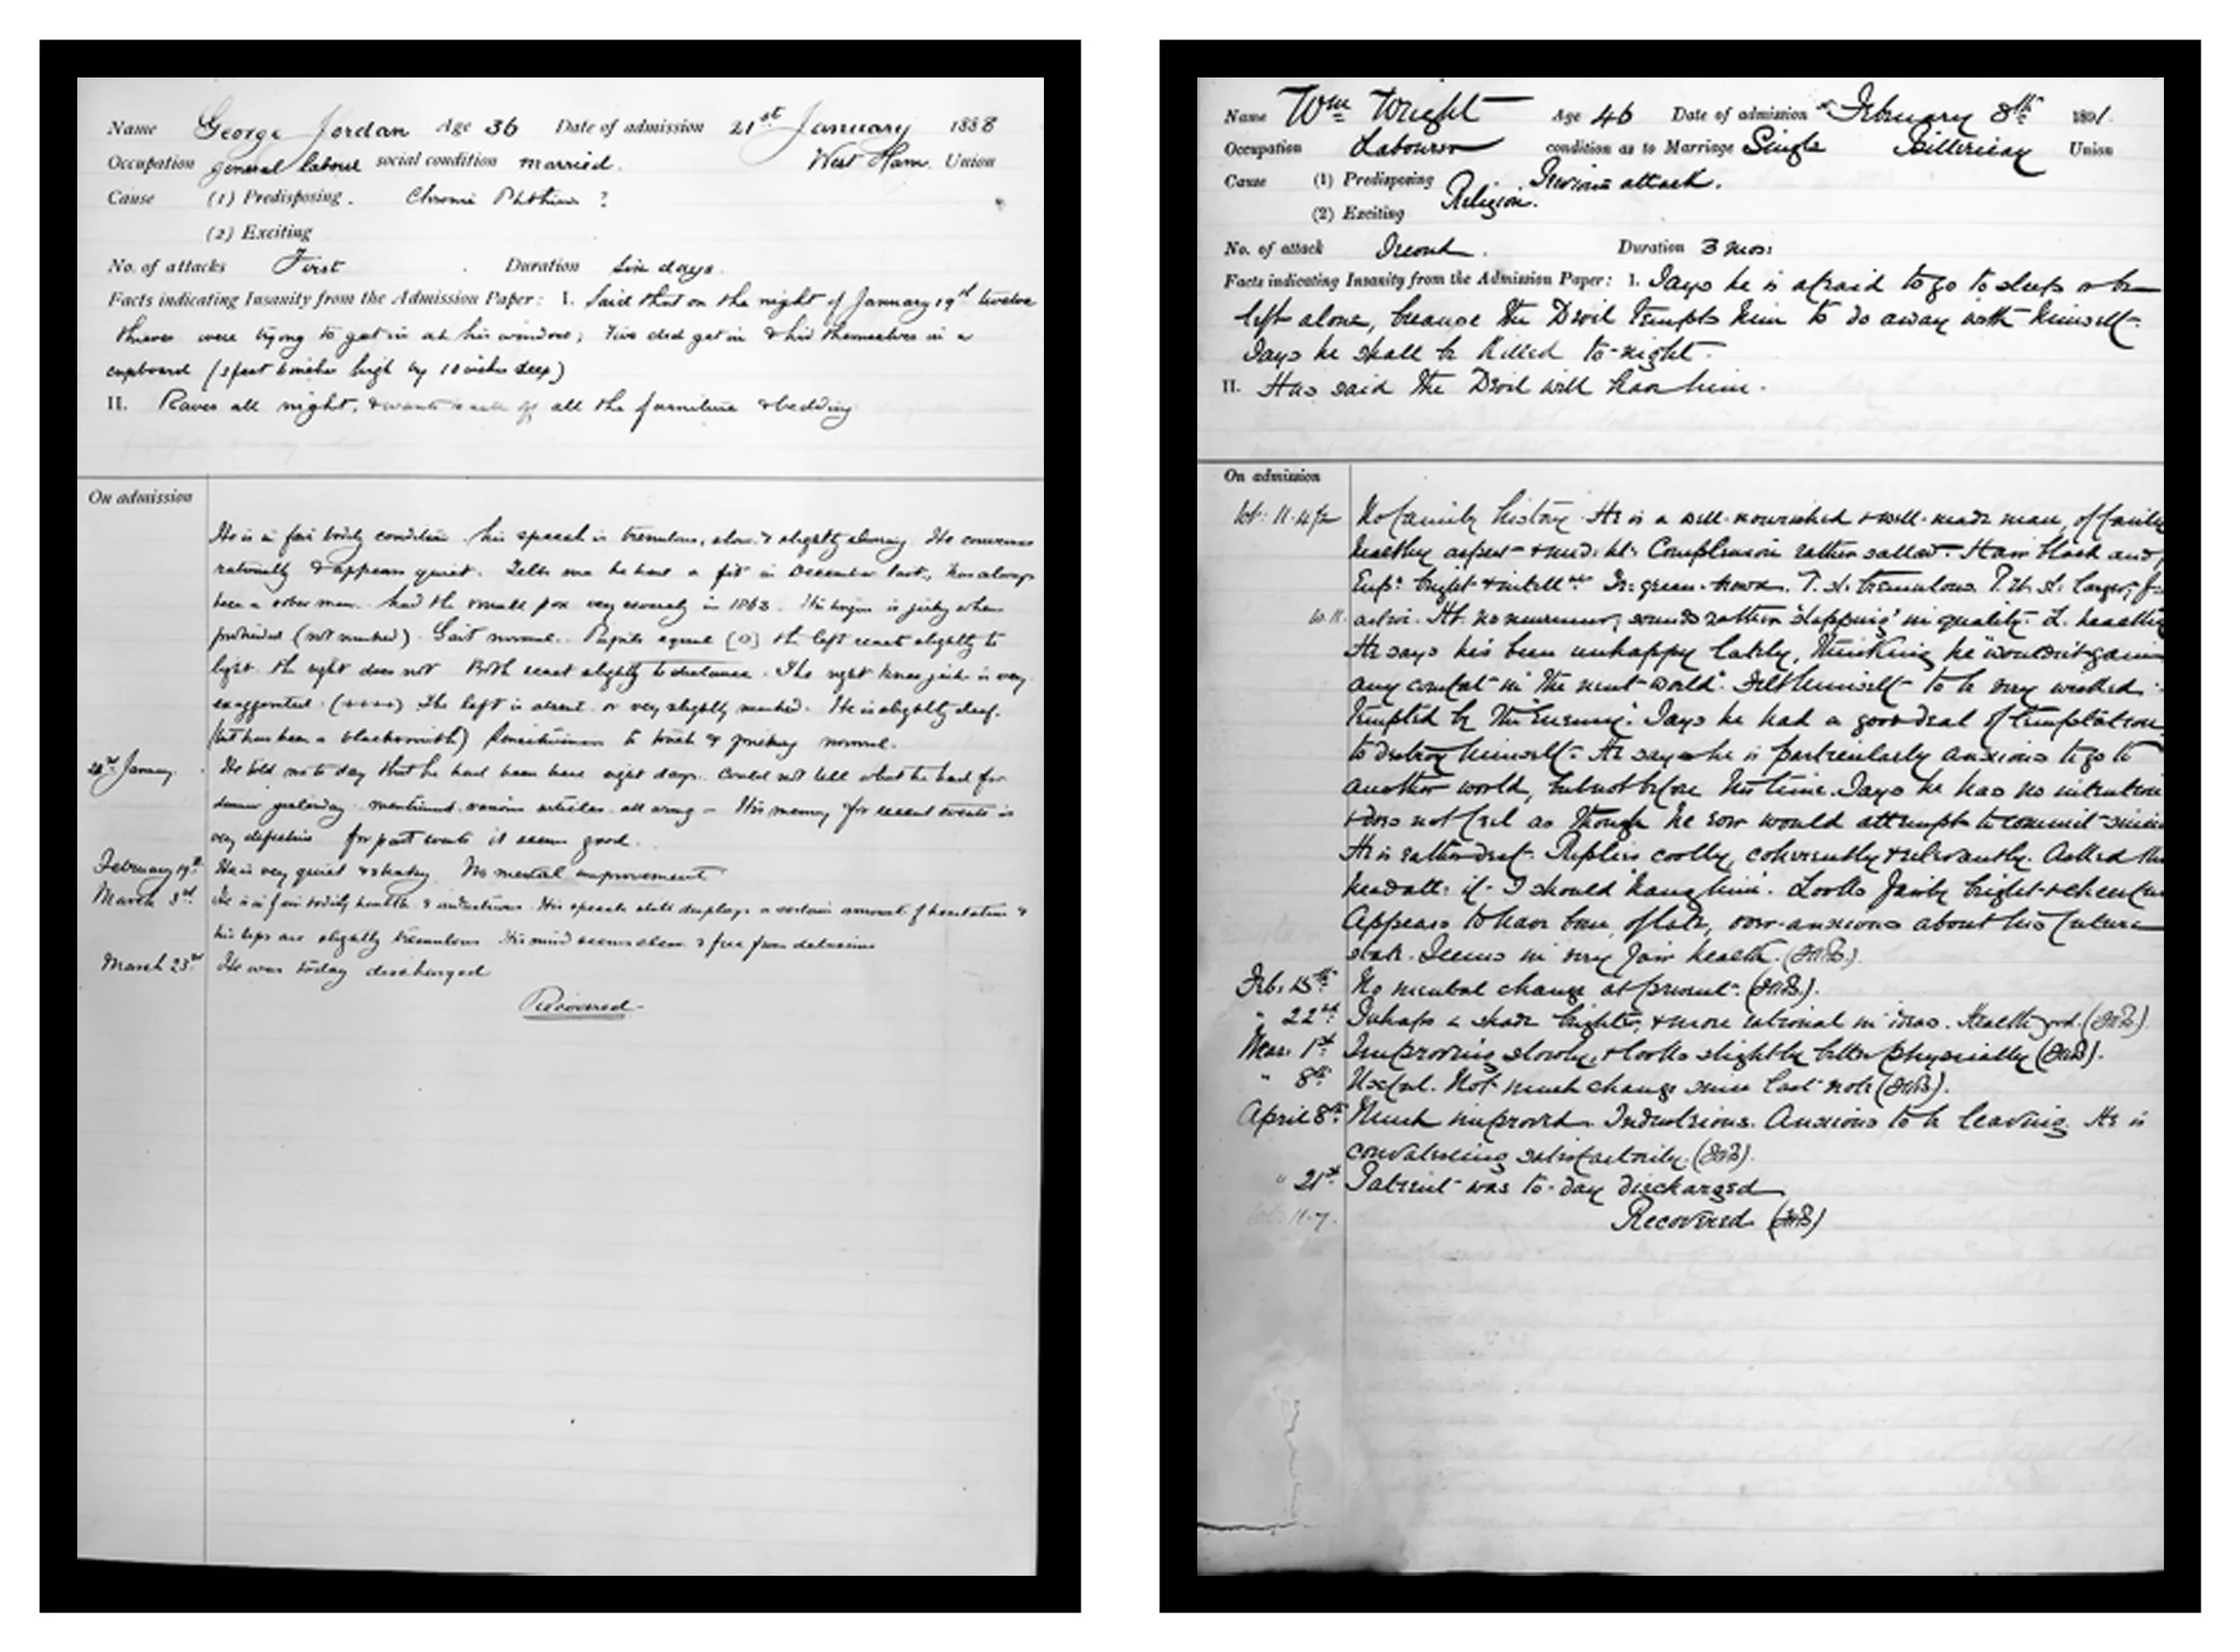 Name George Jordan Age 36 Date of admission 21st January 1888
Occupation general labour social condition married. West Ham. Union
Cause (1) Predisposing. Chronic Phthisis ?
(2) Exciting
No. of attacks First Duration Six days
Facts indicating Insanity from the Admission Paper: I. Said that on the night of January 19th twelve
thieves were trying to get in at his window; Five did get in & hid themselves in a
cupboard (3 feet 6 inches high by 10 inches deep)
II. Raves all night, & wants to sell off all the furniture & bedding
On admission
He is in fair bodily condition. his speech is tremulous, slow & slightly slurring. He converses
rationally & appears quiet. Tells me he had a fit in December last, has always
been a sober man. had the small pox very severely in 1863. His tongue is jerky when
protruded (not marked). Gait normal. Pupils equal [O] the left react slightly to
light. the right does not Both react slightly to distance. The right knee jerk is very
exaggerated (++++) The left is absent or very slightly marked. He is slightly deaf.
(but has been a blacksmith) Sensitiveness to touch & pricking normal.
January. He told me to day that he had been here eight days. could not tell what he had for
dinner yesterday mentioned various articles all wrong – His memory for recent events is
very defective for past events it seems good.
February 19th He is very quiet & shaky No mental improvement
March 3rd He is in fair bodily health & industrious His speech still displays a certain amount of hesitation &
his lips are slightly tremulous His mind seems clear & free from delusions
March 23rd He was today discharged
Recovered
Name Wm Wright Age 46 Date of admission February 8th 1891.
Occupation Labourer condition as to Marriage Single Billericay Union
Cause (1) Predisposing Previous attack.
(2) Exciting Religion.
No. of attack Second. Duration 3 mos:
Facts indicating Insanity from the Admission Paper: 1. Says he is afraid to go to sleep or be
left alone, because the Devil tempts him to do away with himself.
Says he shall be killed to-night.
II. Has said the Devil will have him.
On admission
Wt: 11.4½ No family history. He is a well-nourished & well-made man, of fairly
healthy aspect & med: ht: Complexion rather sallow. Hair black and
bright & green-brown. T. sl: tremulous. larger,
active. Ht. no murmur, sounds rather 'slapping' in quality. L. healthy
He says he's been unhappy lately, thinking he "wouldn't gain
any comfort in the next world". Felt himself to be very wicked
tempted by the "Enemy." Says he had a good deal of temptation
to destroy himself. He says he is particularly anxious to go to
another world, but not before his time. Says he has no intention
& does not feel as though he ever would attempt to commit suicide
He is rather deaf. Replies coolly, coherently & relevantly. Asked the
head att: if I should 'hang him'. Looks fairly bright & cheerful
Appears to have been, of late, over-anxious about his future
state. Seems in very fair health.
Feb. 15th No mental change at present.
" 22nd Perhaps a shade brighter, & more rational in ideas. Health good.
Mar. 1st Improving slowly, & looks slightly better physically
" 8th Useful. Not much change since last note
April 8th Much improved. Industrious. Anxious to be leaving. He is
convalescing satisfactorily.
" 21st Patient was to-day discharged
Wt: 11.7. Recovered